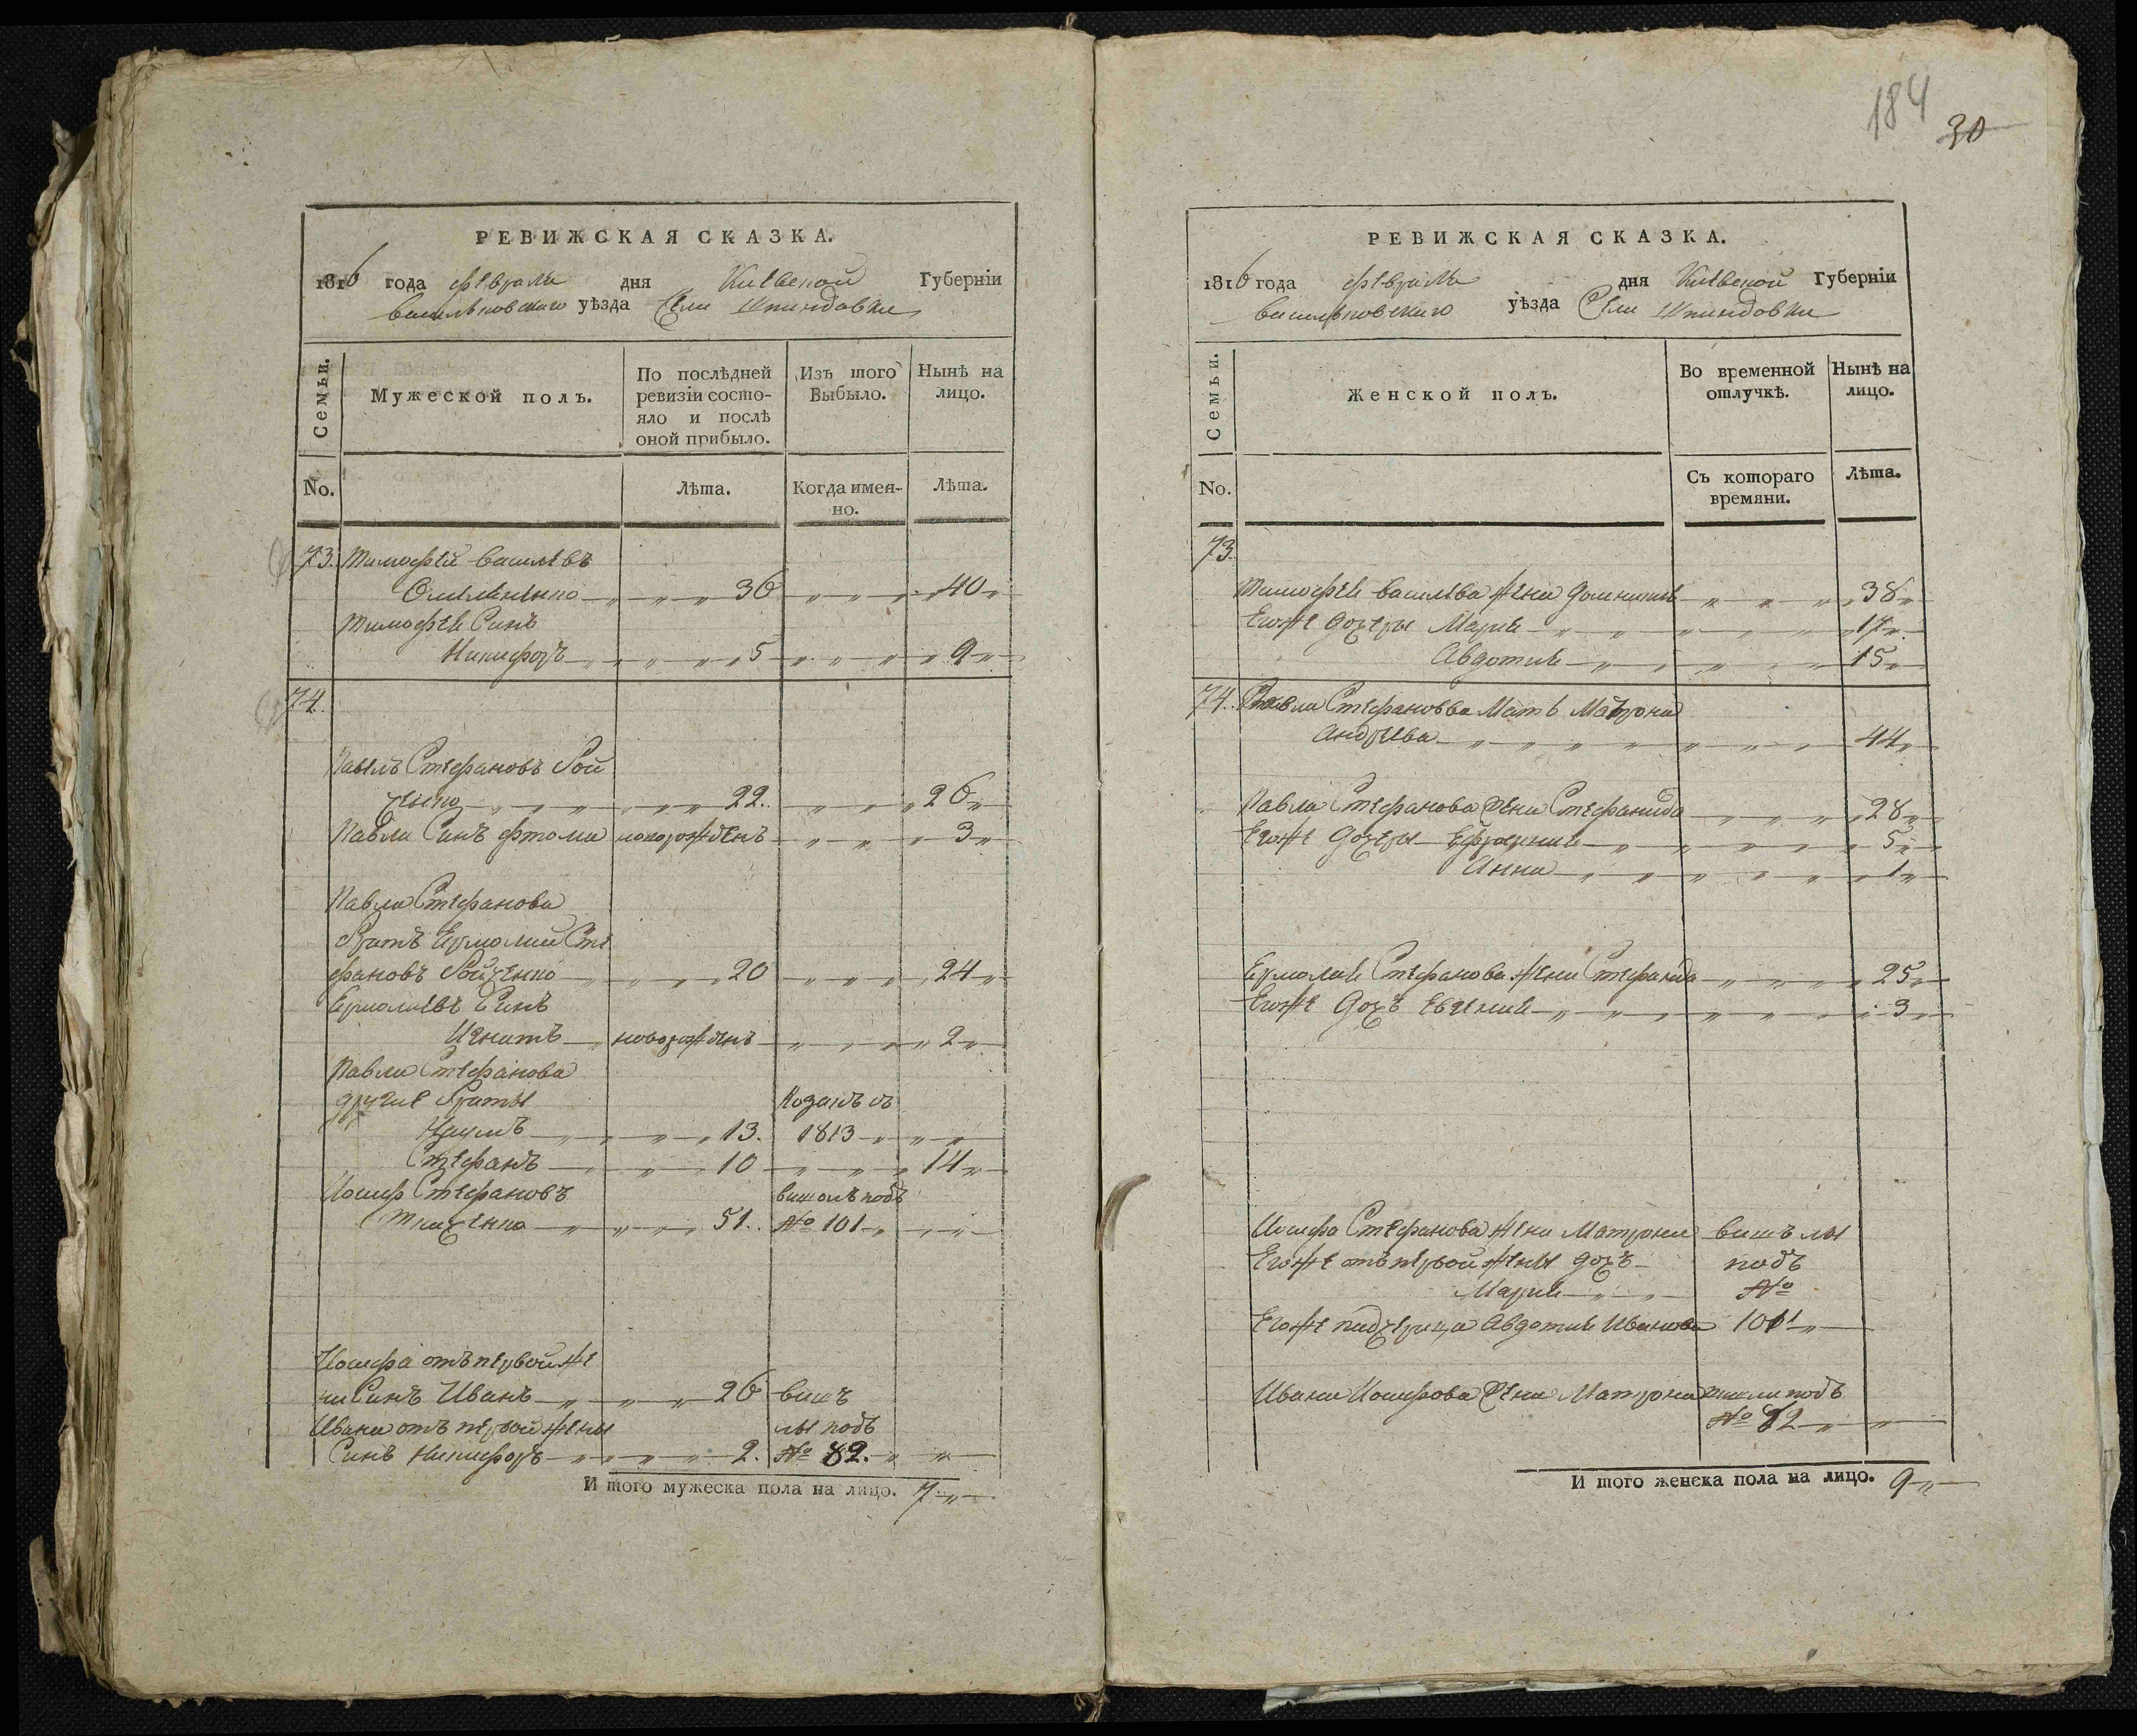 184
30
РЕВИЖСКАЯ СКАЗКА.
1816 года февраля дня Киевской Губерніи
васильковского уѣзда Села Шпиндовки
Семьи.
Мужеской полъ.
По послѣдней ревизіи состо-
яло и послѣ
оной прибыло.
Изъ того Выбыло.
Нынѣ на лицо.
No.
Лѣта.
Когда имен-
но.
Лѣта.
73. Тимофей васильевъ
Омеляненко 36 40
Тимофея Синъ
Никифоръ 5 9
74.
Павелъ Стефановъ Бой
ченко 22. 26
Павла Синъ фтома новорожденъ 3
Павла Стефанова
братъ Ермолай Сте
фановъ Бойченко 20 24
Ермолаевъ Синъ
Игнатъ новорожденъ 2
Павла Стефанова
другие браты
Наумъ 13. Козакъ съ 1813
Стефанъ 10 14
Иосиф Стефановъ
Ткаченко 51. вишолъ подъ № 101
Иосифа отъ первой же
ни Синъ Иванъ 26 виш
Ивана отъ первой жены лы подъ
Синъ Никифоръ 2. № 82.
И того мужеска пола на лицо. 7
РЕВИЖСКАЯ СКАЗКА.
1816 года февраля дня Киевской Губерніи
васильковского уѣзда Села Шпиндовки
Семьи.
Женской полъ.
Во временной
отлучкѣ.
Нынѣ на
лицо.
No.
Съ котораго
времяни.
Лѣта.
73.
Тимофея васильева жена Домникия 38
Егоже дочеры Мария 17
Авдотия 15
74. Павла Стефанова Мать Матрона
Андреева 44
Павла Стефанова жена Стефанида 28
Егоже дочеры Ефросиния 5
Анна 1
Ермолая Стефанова жена Стефанида 25
Егоже дочъ Евгения 3
Иосифа Стефанова жена Матрона вишълы
Егоже отъ первой жены дочъ подъ
Мария №
Егоже падчерица Авдотия Иванова 101
Ивана Иосифова жена Матрона вишли подъ
№ 82
И того женска пола на лицо. 9